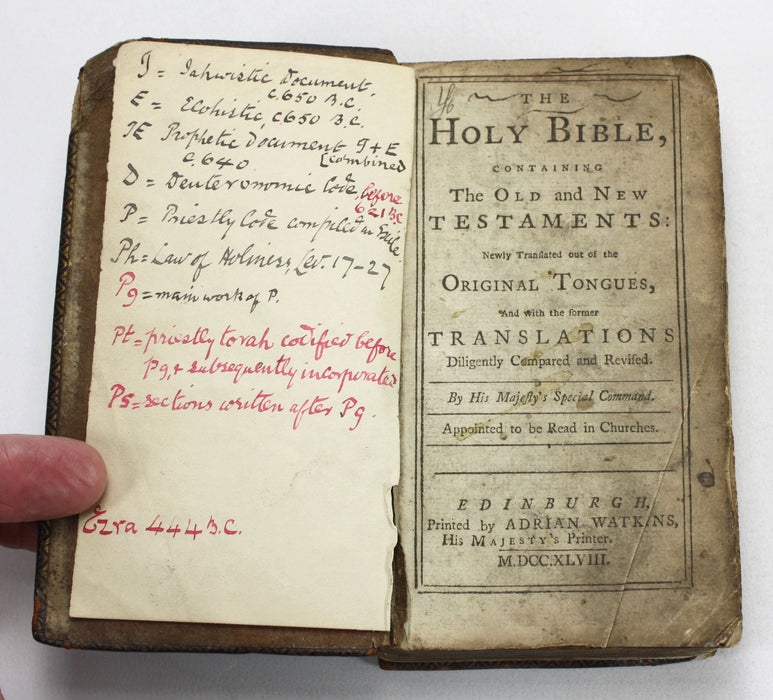 J = Iahwistic Document.
c.650 B.C.
E = Elohistic, c650 B.C.
JE Prophetic Document J + E
c.640. [combined
D = Deuteronomic Code, before
621 B.C
P = Priestly Code compiled in Exile.
Ph = Law of Holiness, Lev. 17-27
Pg = main work of P.
Pt = priestly torah codified before
Pg, & subsequently incorporated
Ps = sections written after Pg.
Ezra 444 B.C.
THE
HOLY BIBLE,
CONTAINING
The OLD and NEW
TESTAMENTS:
Newly Translated out of the
ORIGINAL TONGUES,
And with the former
TRANSLATIONS
Diligently Compared and Reviſed.
By His Majeſty's Special Command.
Appointed to be Read in Churches.
EDINBURGH,
Printed by ADRIAN WATKINS,
His MAJESTY'S Printer.
M.DCC.XLVIII.